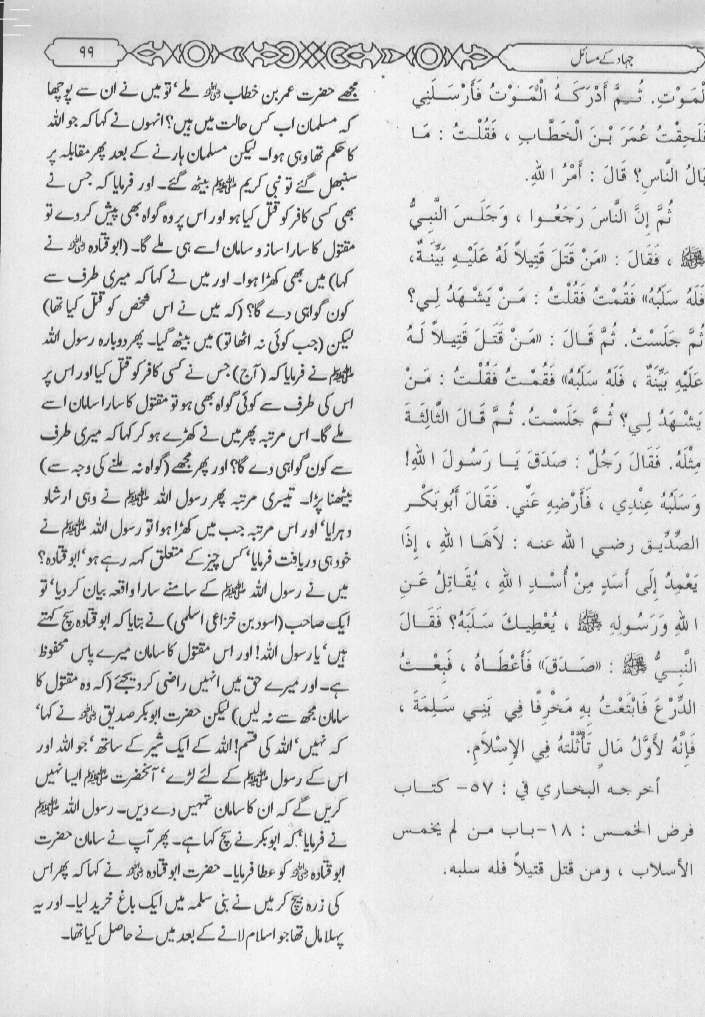 جہاد کے مسائل
۹۹
الْمَوْتِ. ثُـمَّ أَدْرَكَـهُ الْمَـوْتُ فَأَرْسَـلَنِي
فَلَحِقْتُ عُمَرَ بْنَ الْخَطَّابِ ، فَقُلْتُ : مَا
بَالُ النَّاسِ؟ قَالَ : أَمْرُ اللهِ.
ثُمَّ إِنَّ النَّاسَ رَجَعُـوا ، وَجَلَـسَ النَّبِـيُّ
ﷺ ، فَقَالَ : «مَنْ قَتَلَ قَتِيلاً لَهُ عَلَيْـهِ بَيِّنَةٌ،
فَلَهُ سَلَبُهُ» فَقُمْتُ فَقُلْتُ : مَـنْ يَشْـهَدُ لِـي؟
ثُمَّ جَلَسْتُ. ثُمَّ قَالَ : «مَـنْ قَتَـلَ قَتِيـلاً لَـهُ
عَلَيْهِ بَيِّنَةٌ ، فَلَهُ سَلَبُهُ» فَقُمْـتُ فَقُلْـتُ : مَـنْ
يَشْـهَدُ لِـي؟ ثُـمَّ جَلَسْـتُ. ثُـمَّ قَالَ الثَّالِثَةَ
مِثْلَهُ. فَقَالَ رَجُلٌ : صَدَقَ يَـا رَسُـولَ اللهِ!
وَسَلَبُهُ عِنْدِي ، فَأَرْضِهِ عَنِّي. فَقَالَ أَبُوبَكْـرٍ
الصِّدِّيـق رضـي الله عنـه : لاَهَـا اللهِ ، إِذًا
يَعْمِدُ إِلَى أَسَدٍ مِنْ أُسْـدِ اللهِ ، يُقَاتِلُ عَـنِ
اللهِ وَرَسُـولِهِ ﷺ ، يُعْطِيـكَ سَلَبَهُ؟ فَقَـالَ
النَّبِـيُّ ﷺ : «صَدَقَ» فَأَعْطَـاهُ ، فَبِعْـتُ
الدِّرْعَ فَابْتَعْتُ بِهِ مَخْرِفًا فِي بَنِـي سَلِمَةَ ،
فَإِنَّهُ لأَوَّلُ مَالٍ تَأَثَّلْتُهُ فِي الإِسْلاَمِ.
أخرجه البخاري في : ٥٧- كتـاب
فرض الخمـس : ١٨- باب مـن لم يخمـس
الأسلاب ، ومن قتل قتيلاً فله سلبه.
مجھے حضرت عمر بن خطاب رضی اللہ عنہ ملے‘ تو میں نے ان سے پوچھا
کہ مسلمان اب کس حالت میں ہیں؟ انہوں نے کہا کہ جو اللہ
کا حکم تھا وہی ہوا۔ لیکن مسلمان ہارنے کے بعد پھر مقابلہ پر
سنبھل گئے تو نبی کریم ﷺ بیٹھ گئے۔ اور فرمایا کہ جس نے
بھی کسی کافر کو قتل کیا ہو اور اس پر وہ گواہ بھی پیش کر دے تو
مقتول کا سارا ساز و سامان اسے ہی ملے گا۔ (ابو قتادہ رضی اللہ عنہ نے
کہا) میں بھی کھڑا ہوا۔ اور میں نے کہا کہ میری طرف سے
کون گواہی دے گا؟ (کہ میں نے اس شخص کو قتل کیا تھا)
لیکن (جب کوئی نہ اٹھا تو) میں بیٹھ گیا۔ پھر دوبارہ رسول اللہ
ﷺ نے فرمایا کہ (آج) جس نے کسی کافر کو قتل کیا اور اس پر
اس کی طرف سے کوئی گواہ بھی ہو تو مقتول کا سارا سامان اسے
ملے گا۔ اس مرتبہ پھر میں نے کھڑے ہو کر کہا کہ میری طرف
سے کون گواہی دے گا؟ اور پھر مجھے (گواہ نہ ملنے کی وجہ سے)
بیٹھنا پڑا۔ تیسری مرتبہ پھر رسول اللہ ﷺ نے وہی ارشاد
دہرایا‘ اور اس مرتبہ جب میں کھڑا ہوا تو رسول اللہ ﷺ نے
خود ہی دریافت فرمایا‘ کس چیز کے متعلق کہہ رہے ہو‘ ابو قتادہ؟
میں نے رسول اللہ ﷺ کے سامنے سارا واقعہ بیان کر دیا‘ تو
ایک صاحب (اسود بن خزاعی اسلمی) نے بتایا کہ ابو قتادہ سچ کہتے
ہیں‘ یا رسول اللہ! اور اس مقتول کا سامان میرے پاس محفوظ
ہے۔ اور میرے حق میں انہیں راضی کر دیجئے (کہ وہ مقتول کا
سامان مجھ سے نہ لیں) لیکن حضرت ابو بکر صدیق رضی اللہ عنہ نے کہا‘
کہ نہیں‘ اللہ کی قسم! اللہ کے ایک شیر کے ساتھ‘ جو اللہ اور
اس کے رسول ﷺ کے لئے لڑے‘ آنحضرت ﷺ ایسا نہیں
کریں گے کہ ان کا سامان تمہیں دے دیں۔ رسول اللہ ﷺ
نے فرمایا‘ کہ ابو بکر نے سچ کہا ہے۔ پھر آپ نے سامان حضرت
ابو قتادہ رضی اللہ عنہ کو عطا فرمایا۔ حضرت ابو قتادہ رضی اللہ عنہ نے کہا کہ پھر اس
کی زرہ بیچ کر میں نے بنی سلمہ میں ایک باغ خرید لیا۔ اور یہ
پہلا مال تھا جو اسلام لانے کے بعد میں نے حاصل کیا تھا۔